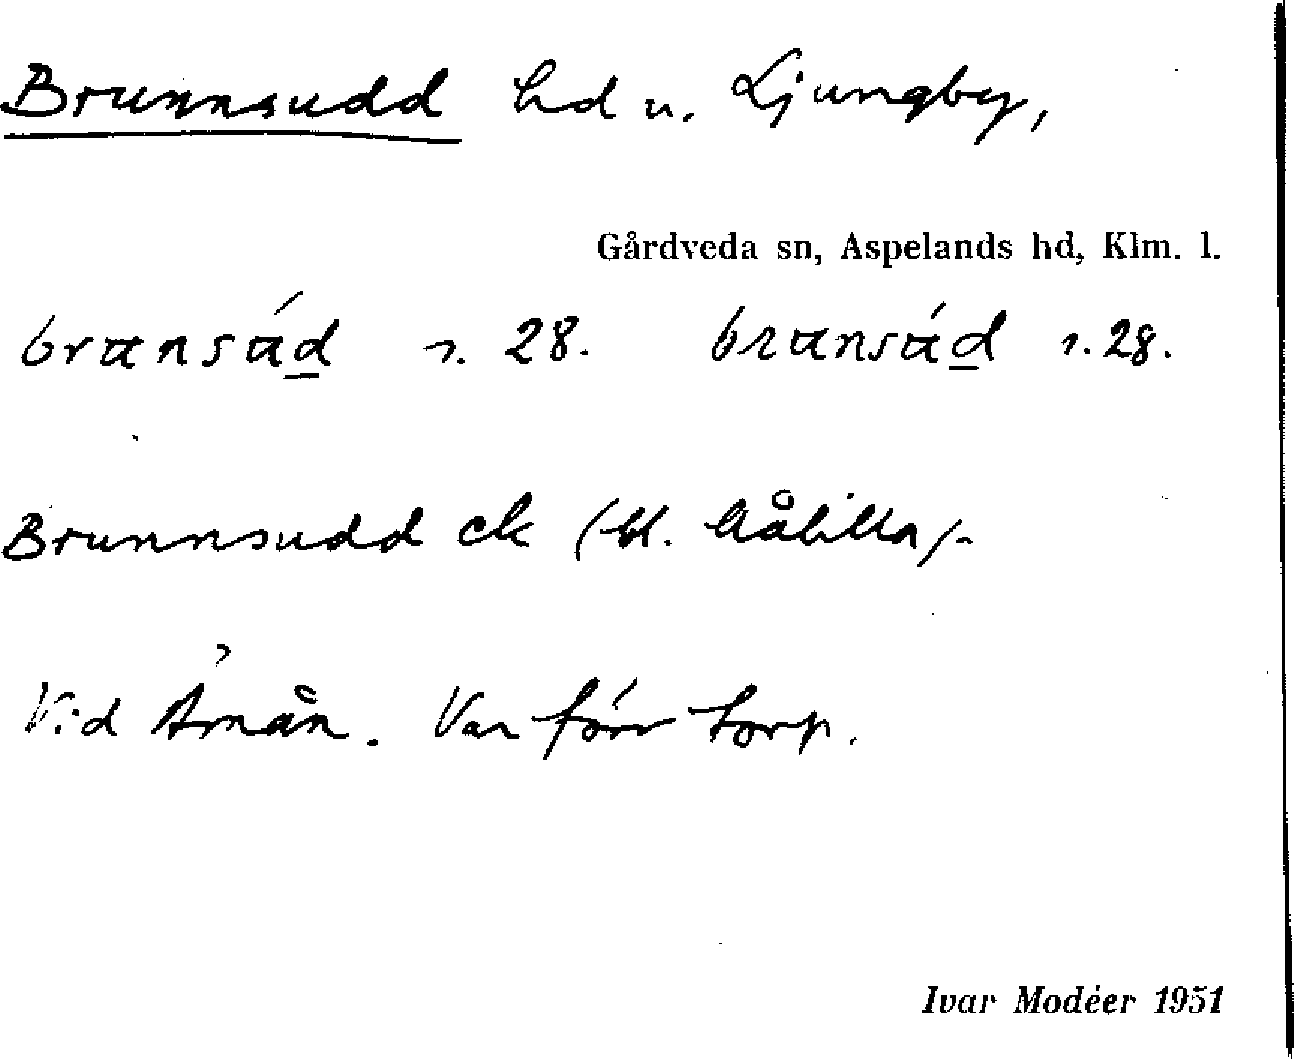 Brunnsudd hd u. Ljungby,
Gårdveda sn, Aspelands hd, Klm. l.
brunsúd s. 28. brunsúd s. 28.
Brunnsudd ek (bl. Målilla).
Vid Åmån. Var förr torp.
Ivar Modéer 1951